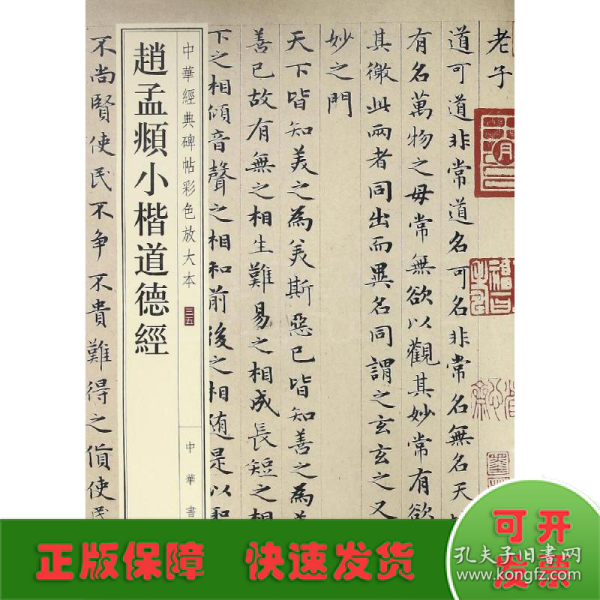 老子
道可道非常道名可名非常名無名天
有名萬物之母常無欲以觀其妙常有欲
其徼此兩者同出而異名同謂之玄玄之又
妙之門
天下皆知美之為美斯惡已皆知善之為
善已故有無之相生難易之相成長短之相
下之相傾音聲之相和前後之相随是以聖
不尚賢使民不争不貴難得之貨使民
中華經典碑帖彩色放大本
三五
趙孟頫小楷道德經
中華書
正版保障 快速发货
可开
发票
孔夫子旧书网
www.kongfz.com